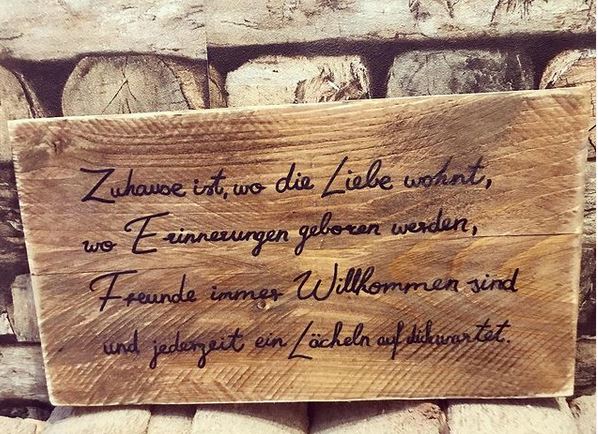 Zuhause ist, wo die Liebe wohnt,
wo Erinnerungen geboren werden,
Freunde immer Willkommen sind
und jederzeit ein Lächeln auf dich wartet.